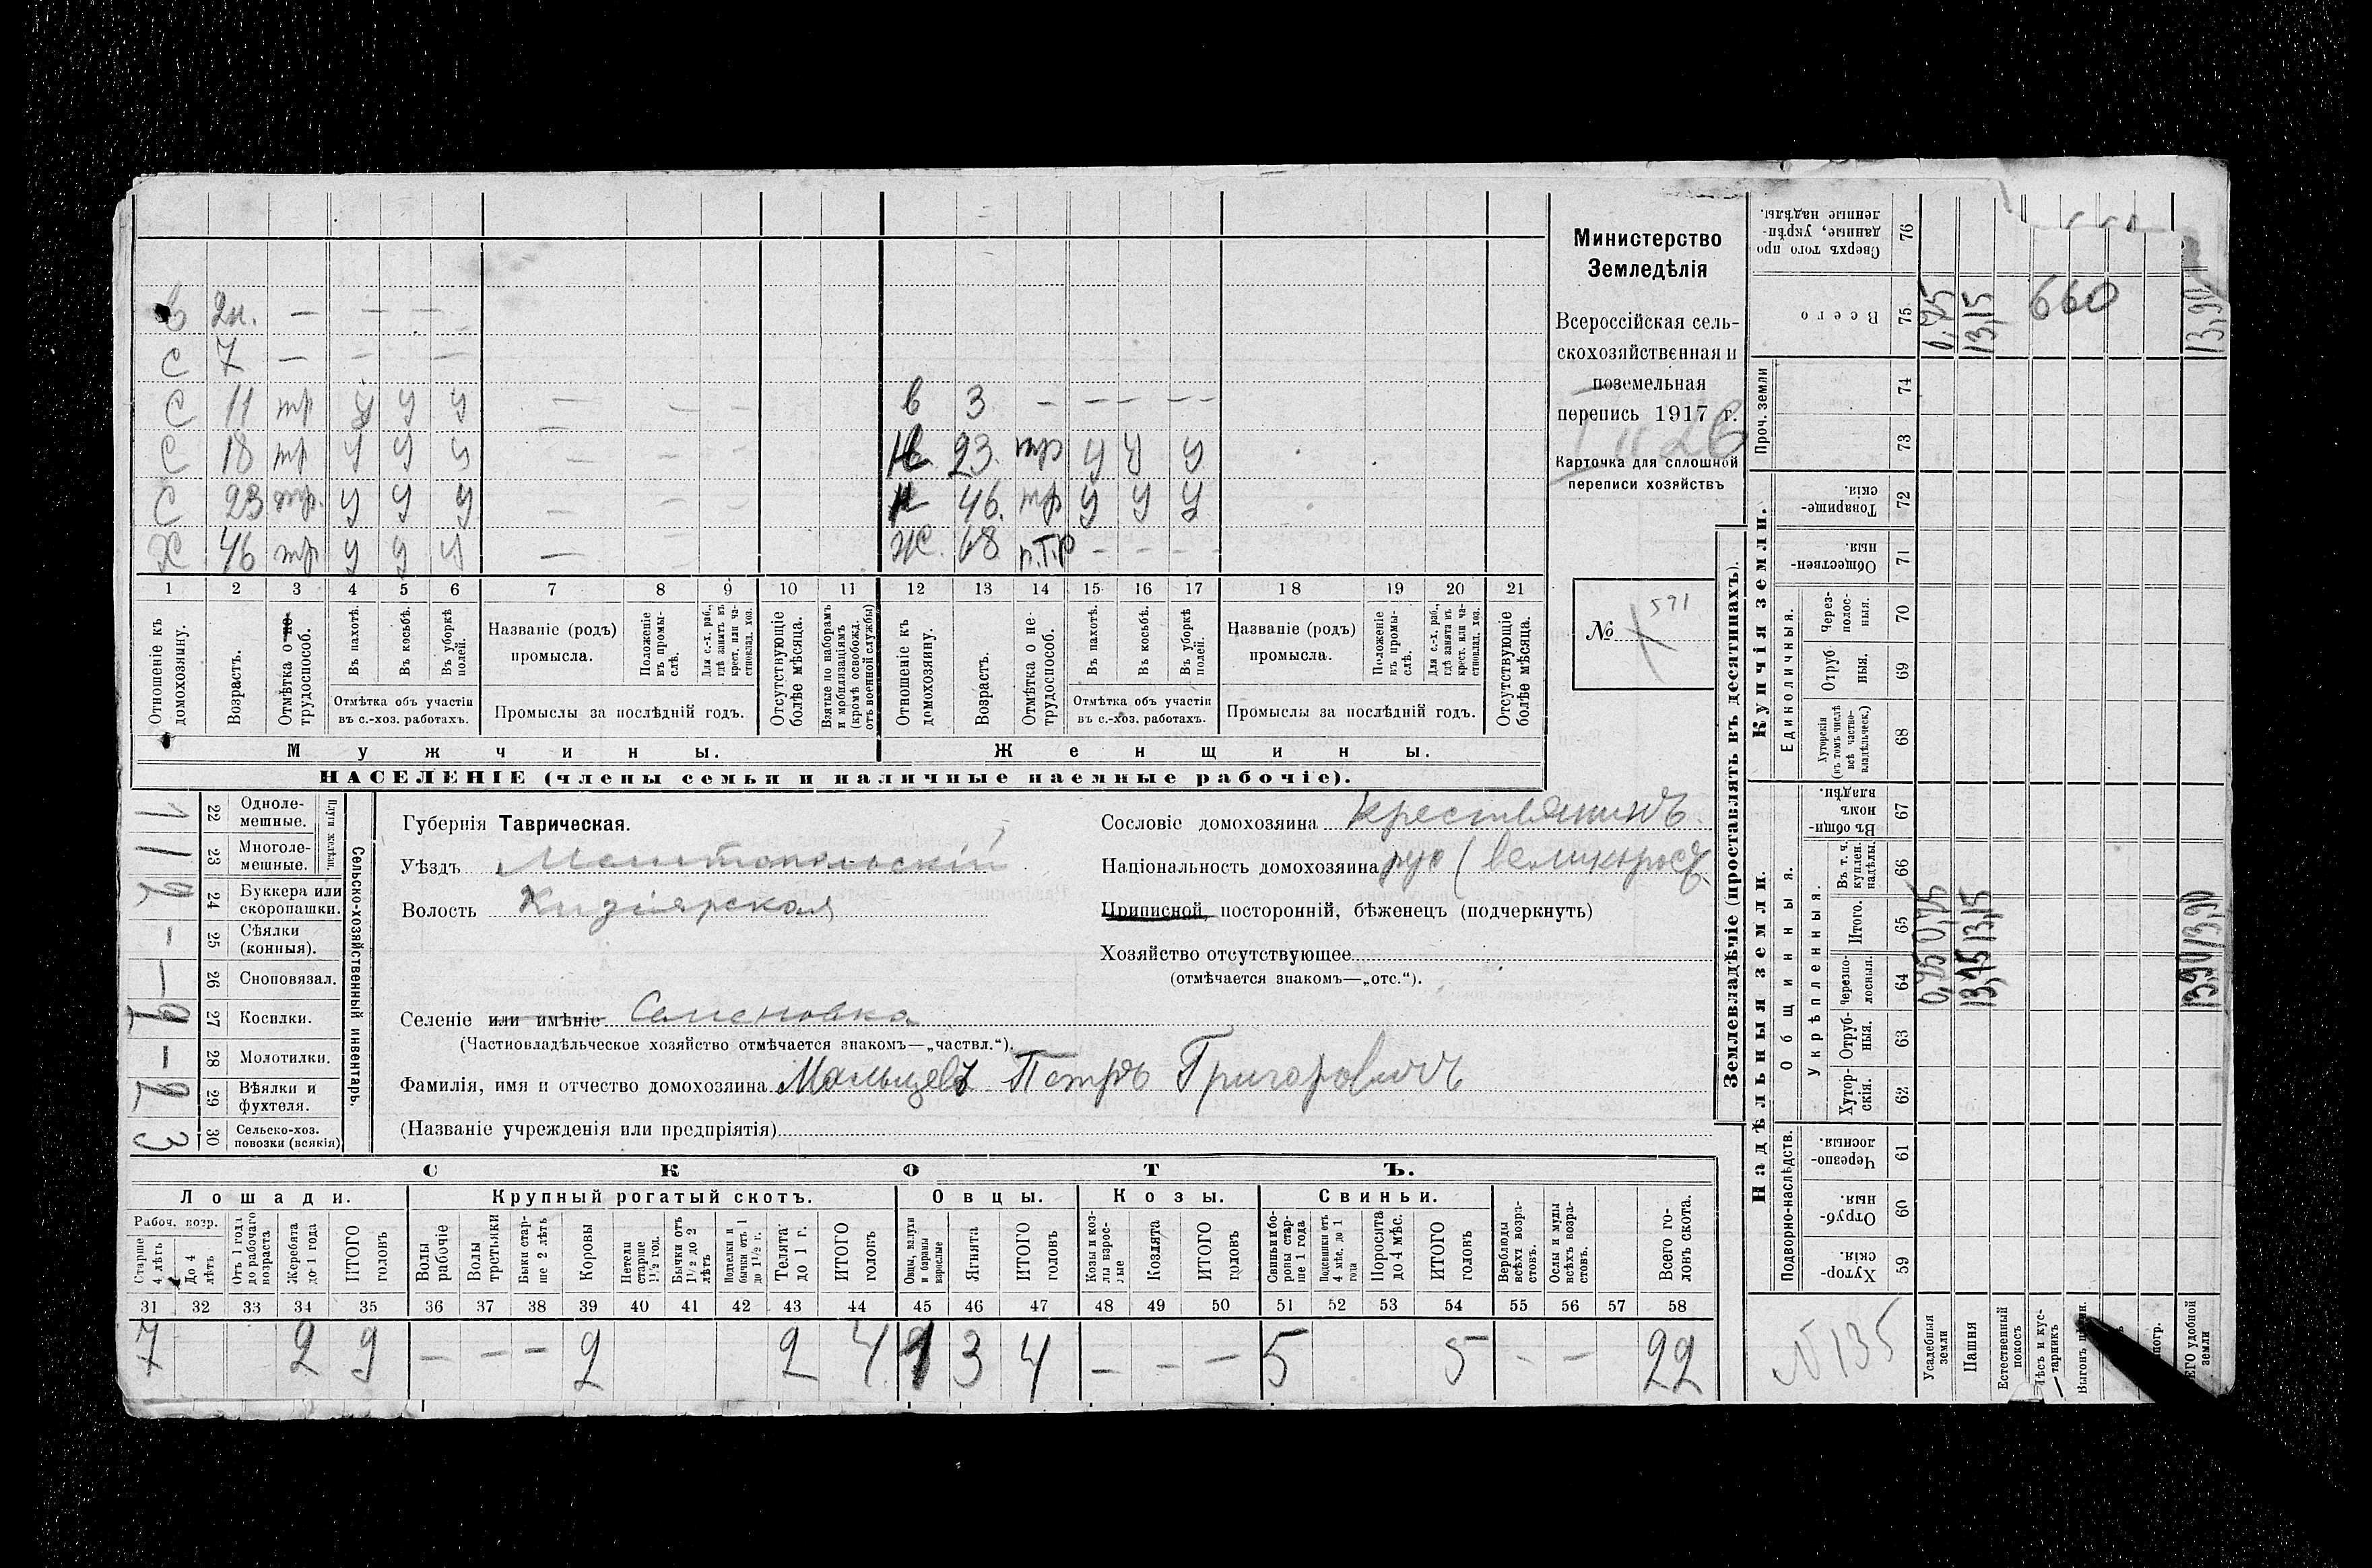 в 2м. — — —
с 7 — — —
с 11 тр у у у — — — в 3 — — — — —
с 18 тр у у у — — — 23 тр у у у
с 23 тр. у у у — — 46. тр у у у
Х 46 тр у у у — — Ж. 68 н.т.р — — — —
1 2 3 4 5 6 7 8 9 10 11 12 13 14 15 16 17 18 19 20 21
Отношеніе къ домохозяину.
Возрастъ.
Отмѣтка о не-трудоспособ.
Въ пахотѣ.
Въ косьбѣ.
Въ уборкѣ полей.
Отмѣтка объ участіи въ с.-хоз. работахъ.
Названіе (родъ) промысла.
Положеніе въ промы-слѣ.
Для с.-х. раб., гдѣ занятъ въ крест. или ча-стновлад. хоз.
Промыслы за послѣдній годъ.
Отсутствующіе болѣе мѣсяца.
Взятые по наборамъ и мобилизаціямъ (кромѣ освобожд. отъ военной службы)
Отношеніе къ домохозяину.
Возрастъ.
Отмѣтка о не-трудоспособ.
Въ пахотѣ.
Въ косьбѣ.
Въ уборкѣ полей.
Отмѣтка объ участіи въ с.-хоз. работахъ.
Названіе (родъ) промысла.
Положеніе въ промы-слѣ.
Для с.-х. раб., гдѣ занята въ крест. или ча-стновлад. хоз.
Промыслы за послѣдній годъ.
Отсутствующіе болѣе мѣсяца.
Мужчины. Женщины.
НАСЕЛЕНІЕ (члены семьи и наличные наемные рабочіе).
Министерство
Земледѣлія
Всероссійская сель-
скохозяйственная и
поземельная
перепись 1917 г.
Карточка для сплошной
переписи хозяйствъ
№ 571
Сельско-хозяйственный инвентарь.
Плуги желѣзн.
Одноле-мешные. 22 1
Многоле-мешные. 23 1
Буккера или скоропашки. 24 2
Сѣялки (конныя). 25 —
Сноповязал. 26 —
Косилки. 27
Молотилки. 28 —
Вѣялки и фухтеля. 29
Сельско-хоз. повозки (всякія) 30 3
Губернія Таврическая.
Уѣздъ Мелитопольскій
Волость Кизіярская
Сословіе домохозяина крестьянинъ
Національность домохозяина рус (великорос
Приписной, посторонній, бѣженецъ (подчеркнуть)
Хозяйство отсутствующее
(отмѣчается знакомъ—„отс.“).
Селеніе или имѣніе Семеновка
(Частновладѣльческое хозяйство отмѣчается знакомъ—„частвл.“).
Фамилія, имя и отчество домохозяина Мальцевъ Петръ Григоровичъ
(Названіе учрежденія или предпріятія)
СКОТЪ.
Лошади. Крупный рогатый скотъ. Овцы. Козы. Свиньи.
Рабоч. возр.
Старше 4 лѣтъ
До 4 лѣтъ
Отъ 1 года до рабочаго возраста
Жеребята до 1 года
ИТОГО головъ
Волы рабочіе
Волы третьяки
Быки стар-ше 2 лѣтъ
Коровы
Нетели старше 1½ год.
Бычки отъ 1½ до 2 лѣтъ
Подтелки и бычки отъ 1 до 1½ г.
Телята до 1 г.
ИТОГО головъ
Овцы, валухи и бараны взрослые
Ягнята
ИТОГО головъ
Козы и коз-лы взрос-лые
Козлята
ИТОГО головъ
Свиньи и бо-ровы стар-ше 1 года
Подсвинки отъ 4 мѣс. до 1 года
Поросята до 4 мѣс.
ИТОГО головъ
Верблюды всѣхъ возра-стовъ.
Ослы и мулы всѣхъ возра-стовъ.
Всего го-ловъ скота.
31 32 33 34 35 36 37 38 39 40 41 42 43 44 45 46 47 48 49 50 51 52 53 54 55 56 57 58
7 2 9 — — — 2 2 4 1 3 4 — — — 5 5 — — 22
Землевладѣніе (проставлять въ десятинахъ).
Сверхъ того про-данные, укрѣп-ленные надѣлы. 76
Всего 75 0,75 13,15 660 13,90
Проч. земли 74
73
Купчія земли.
Товарище-скія. 72
Обществен-ныя. 71
Единоличныя.
Через-полос-ныя. 70
Отруб-ныя. 69
Хуторскія (въ томъ числѣ всѣ частно-владѣльческ.) 68
Надѣльныя земли.
Общинныя.
Въ общин-номъ владѣн. 67
Укрѣпленныя.
Въ т. ч. куплен. надѣлы. 66
Итого. 65 0,75 13,15 13,90
Черезпо-лосныя. 64 0,75 13,15 13,90
Отруб-ныя. 63
Хутор-скія. 62
Подворно-наслѣдств.
Черезпо-лосныя. 61
Отруб-ныя. 60
Хутор-скія. 59
N 135
Усадебныя земли
Пашня
Естественный покосъ
Лѣсъ и кус-тарникъ
Выгонъ
удобной земли